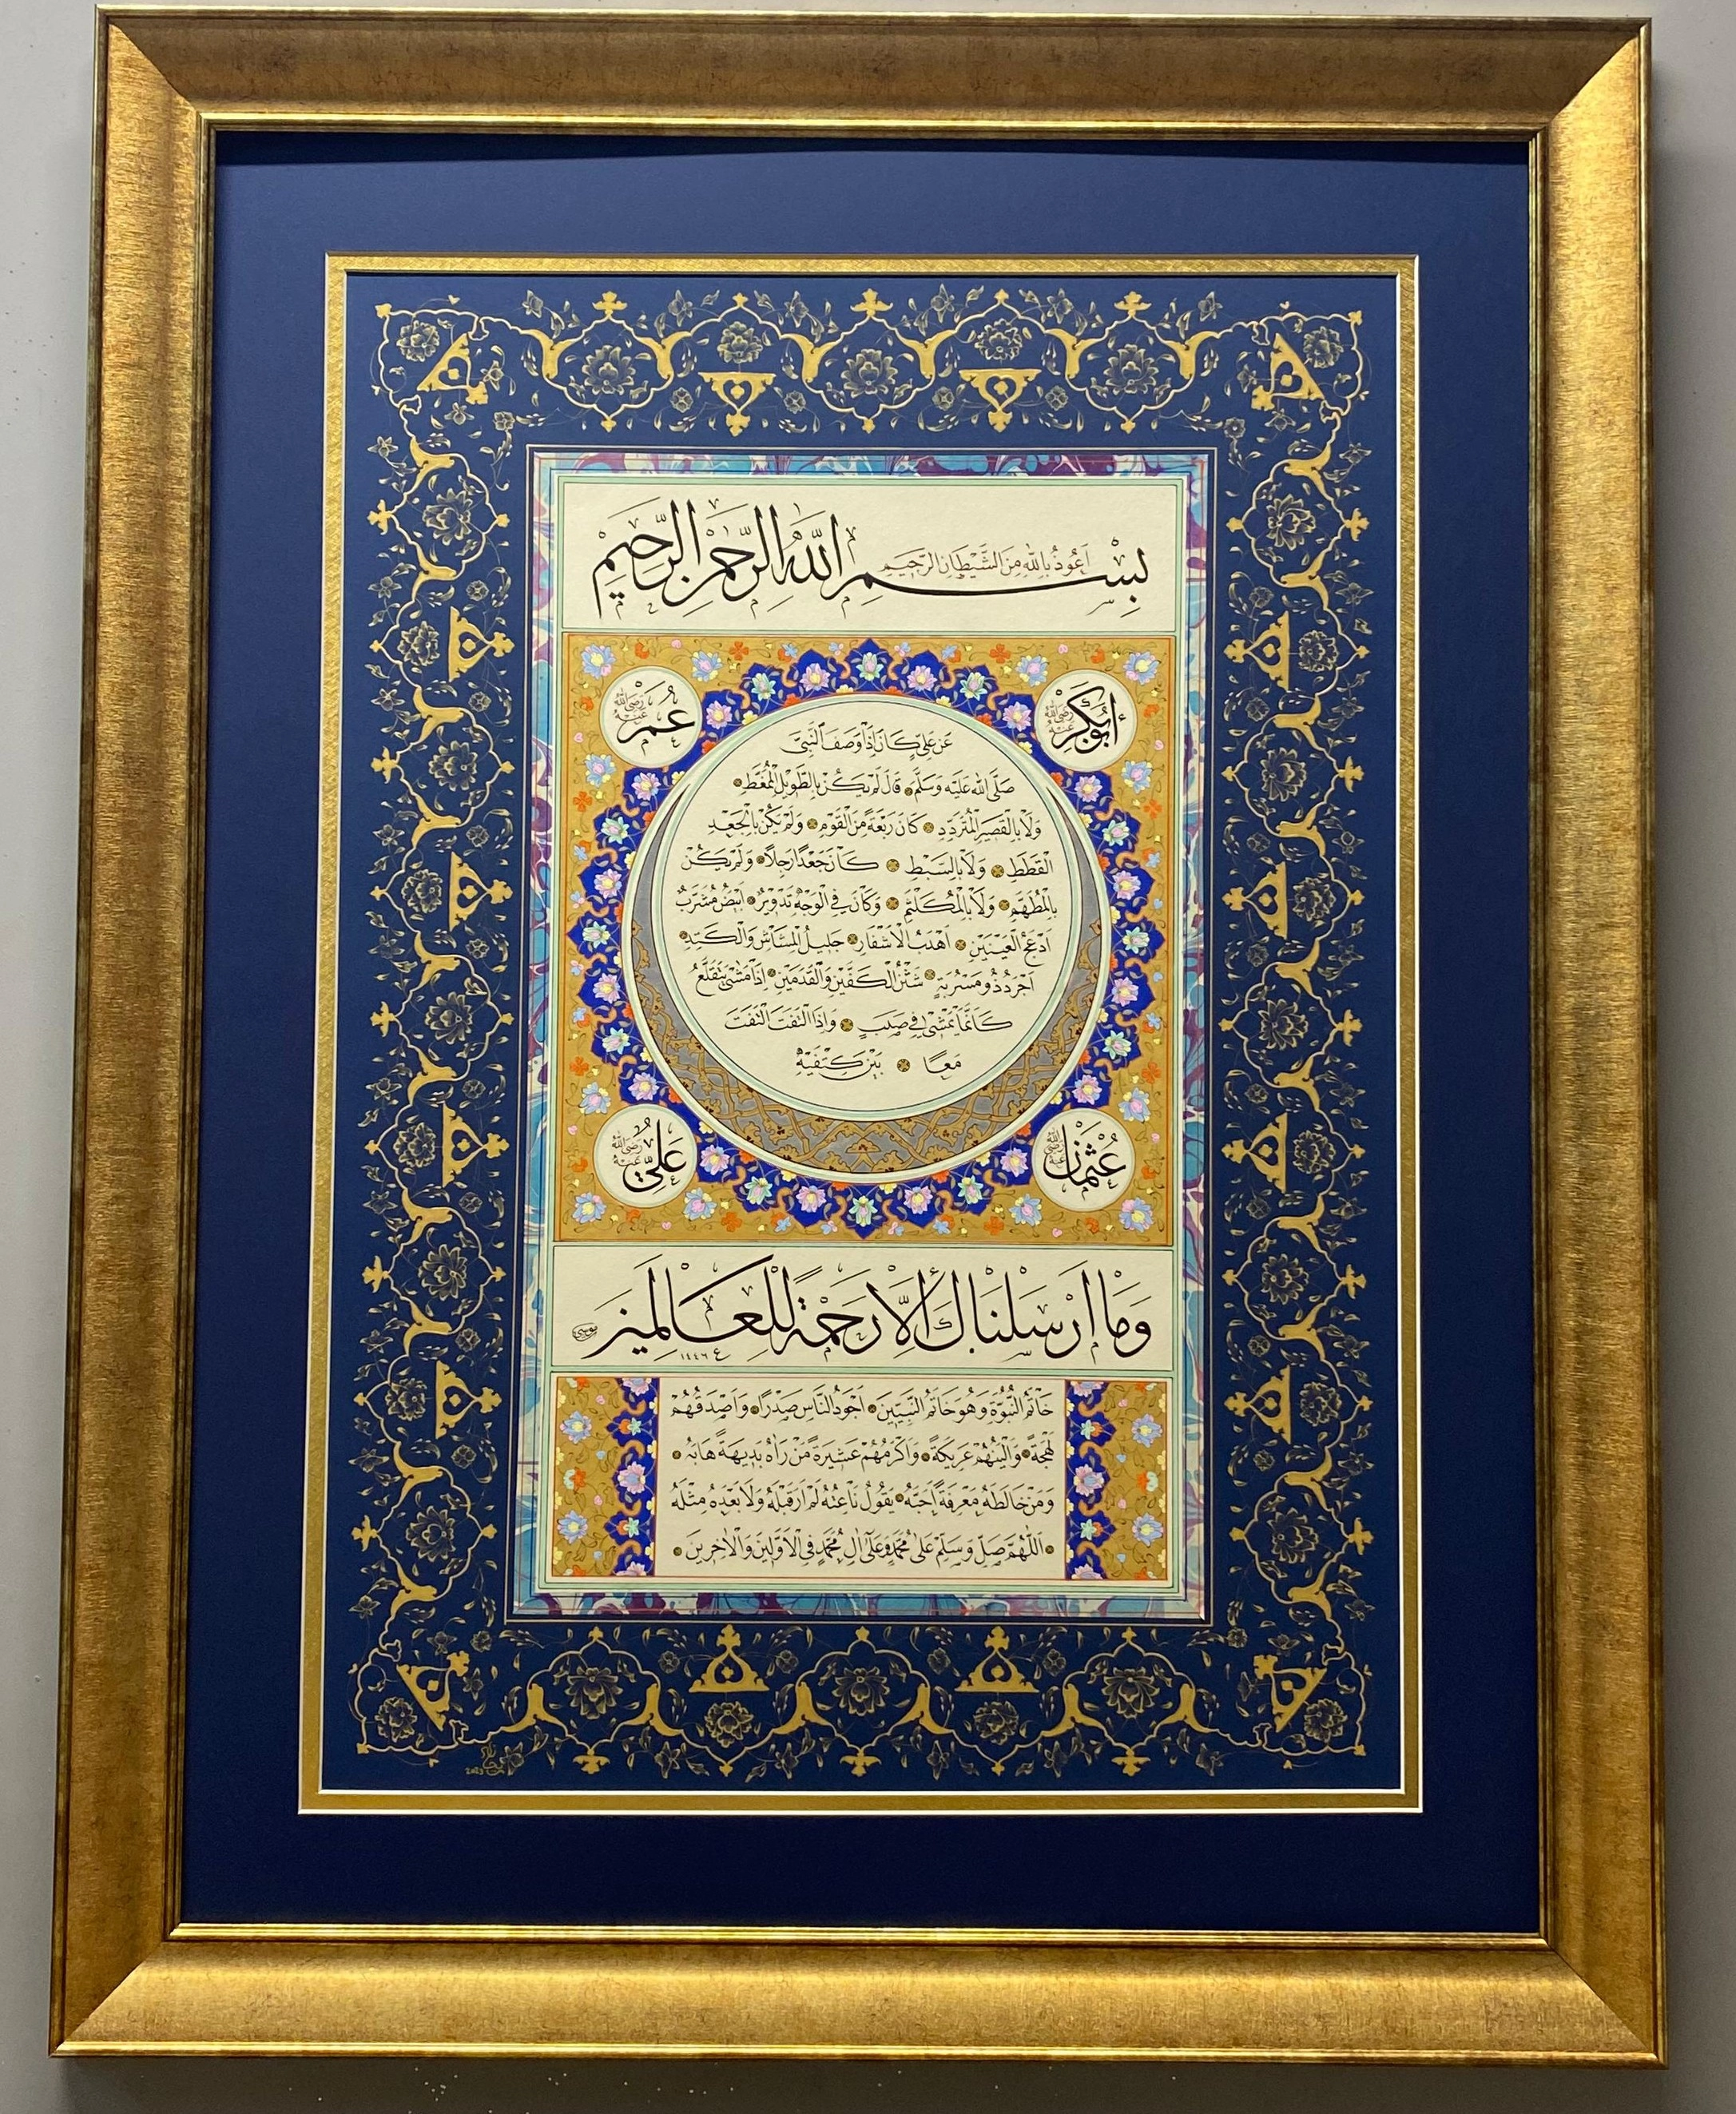 اَعُوذُ بِاللّٰهِ مِنَ الشَّيْطَانِ الرَّجِيمِ
بِسْمِ اللّٰهِ الرَّحْمٰنِ الرَّحِيمِ
أَبُوبَكْرٍ رَضِيَ اللّٰهُ عَنْهُ
عُمَرُ رَضِيَ اللّٰهُ عَنْهُ
عَنْ عَلِيٍّ كَانَ اِذَا وَصَفَ النَّبِيَّ
صَلَّى اللّٰهُ عَلَيْهِ وَسَلَّمَ قَالَ لَمْ يَكُنْ بِالطَّوِيلِ الْمُمَّغَطِ
وَلَا بِالْقَصِيرِ الْمُتَرَدِّدِ كَانَ رَبْعَةً مِنَ الْقَوْمِ وَلَمْ يَكُنْ بِالْجَعْدِ
الْقَطَطِ وَلَا بِالسَّبْطِ كَانَ جَعْدًا رَجِلًا وَلَمْ يَكُنْ
بِالْمُطَهَّمِ وَلَا بِالْمُكَلْثَمِ وَكَانَ فِي الْوَجْهِ تَدْوِيرٌ اَبْيَضُ مُشْرَبٌ
اَدْعَجُ الْعَيْنَيْنِ اَهْدَبُ الْاَشْفَارِ جَلِيلُ الْمُشَاشِ وَالْكَتَدِ
اَجْرَدُ ذُو مَسْرُبَةٍ شَثْنُ الْكَفَّيْنِ وَالْقَدَمَيْنِ اِذَا مَشٰى يَتَقَلَّعُ
كَاَنَّمَا يَمْشِي فِي صَبَبٍ وَاِذَا الْتَفَتَ الْتَفَتَ
مَعًا بَيْنَ كَتِفَيْهِ
عُثْمَانُ رَضِيَ اللّٰهُ عَنْهُ
عَلِيٌّ رَضِيَ اللّٰهُ عَنْهُ
وَمَا اَرْسَلْنَاكَ اِلَّا رَحْمَةً لِلْعَالَمِينَ
موسى
١٤٤٦
خَاتَمُ النُّبُوَّةِ وَهُوَ خَاتَمُ النَّبِيِّينَ اَجْوَدُ النَّاسِ صَدْرًا وَاَصْدَقُهُمْ
لَهْجَةً وَاَلْيَنُهُمْ عَرِيكَةً وَاَكْرَمُهُمْ عَشِيرَةً مَنْ رَاٰهُ بَدِيهَةً هَابَهُ
وَمَنْ خَالَطَهُ مَعْرِفَةً اَحَبَّهُ يَقُولُ نَاعِتُهُ لَمْ اَرَ قَبْلَهُ وَلَا بَعْدَهُ مِثْلَهُ
اَللّٰهُمَّ صَلِّ وَسَلِّمْ عَلٰى مُحَمَّدٍ وَعَلٰى اٰلِ مُحَمَّدٍ فِي الْاَوَّلِينَ وَالْاٰخِرِينَ